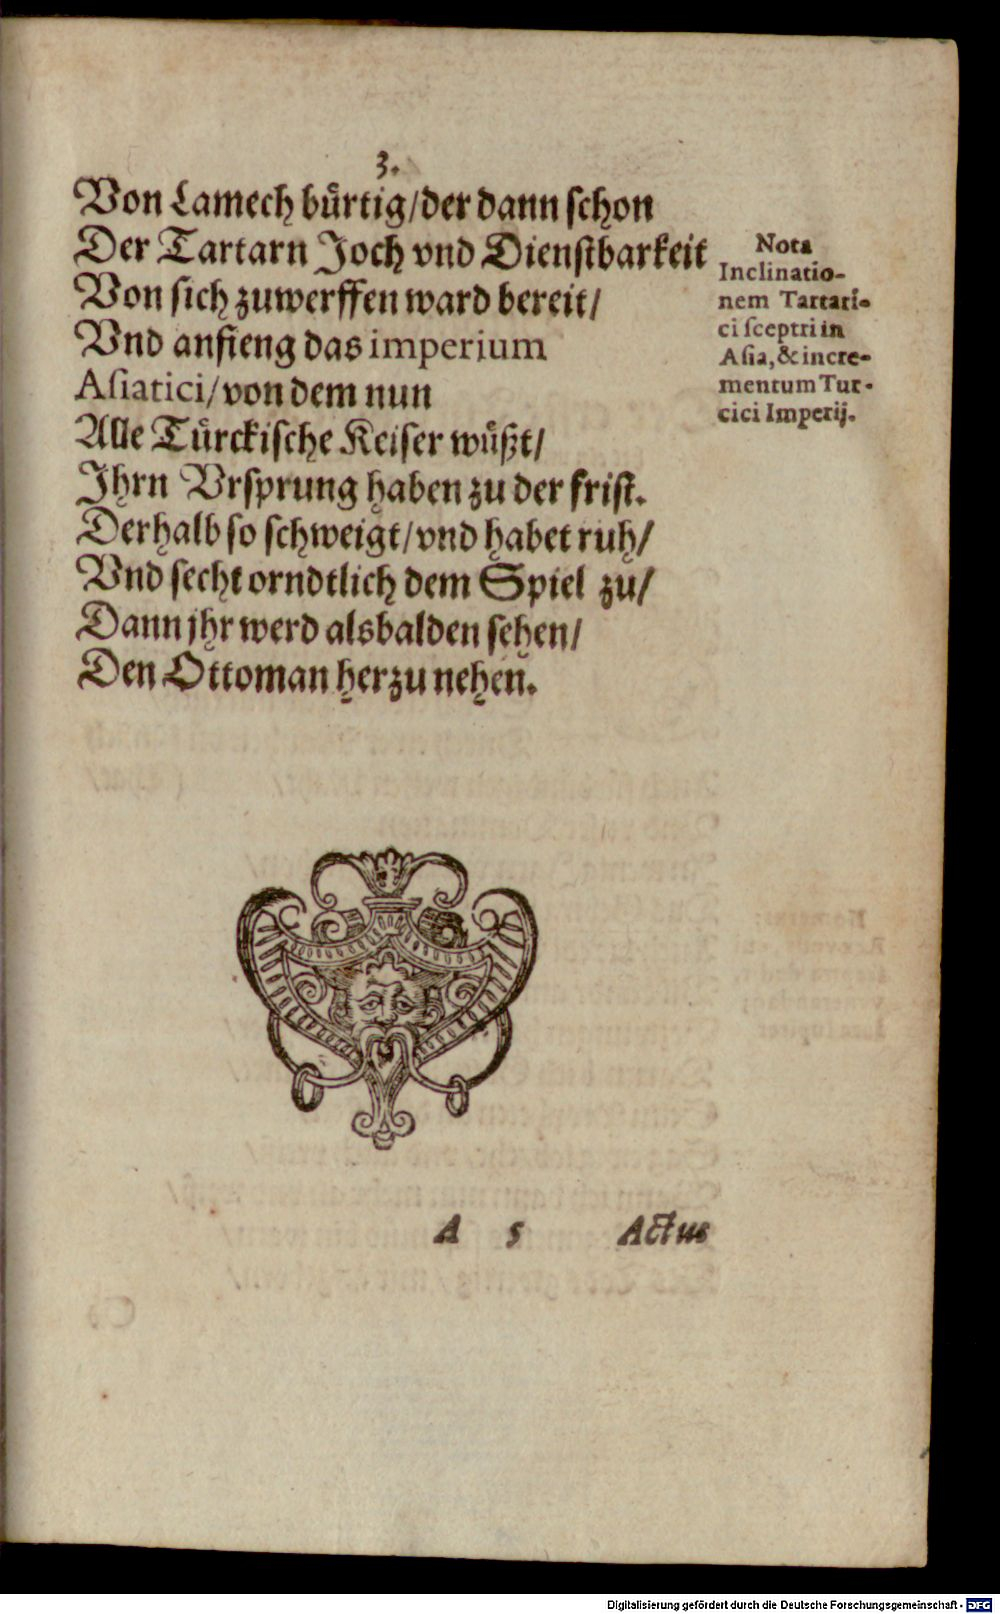 3.
Von Lamech bürtig/der dann schon
Der Tartarn Joch vnd Dienstbarkeit
Von sich zuwerffen ward bereit/
Vnd anfieng das imperium
Asiatici/von dem nun
Alle Türckische Keiser wüßt/
Ihrn Vrsprung haben zu der frist.
Derhalb so schweigt/vnd habet ruh/
Vnd secht orndtlich dem Spiel zu/
Dann jhr werd alsbalden sehen/
Den Ottoman herzu nehen.
Nota
Inclinatio-
nem Tartari-
ci sceptri in
Asia, & incre-
mentum Tur-
cici Imperij.
A 5 Actus
Digitalisierung gefördert durch die Deutsche Forschungsgemeinschaft - DFG